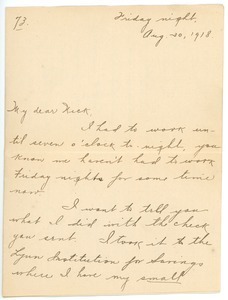 73.
Friday night.
Aug. 30, 1918
My dear Kick.
I had to work un-
til seven o'clock to night, you
know we haven't had to work
Friday nights for some time
now.
I want to tell you
what I did with the check
you sent. I took it to the
Lynn Institution for Savings
where I have my small